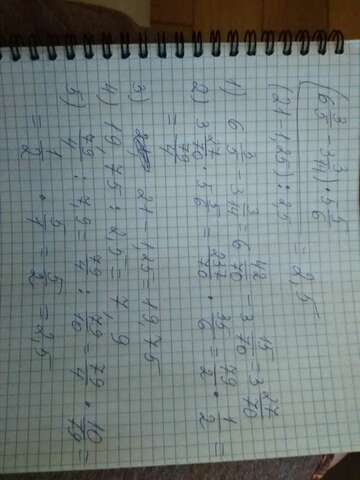 (6 3/5 - 3 3/14) · 5 5/6
(21 - 1,25) : 2,5 = 2,5
1) 6 3/5 - 3 3/14 = 6 42/70 - 3 15/70 = 3 27/70
2) 3 27/70 · 5 5/6 = 237/70 · 35/6 = 79/2 · 1/2 =
= 79/4
3) 21 - 1,25 = 19,75
4) 19,75 : 2,5 = 7,9
5) 79/4 : 7,9 = 79/4 : 79/10 = 79/4 · 10/79 =
= 1/2 · 5/1 = 5/2 = 2,5